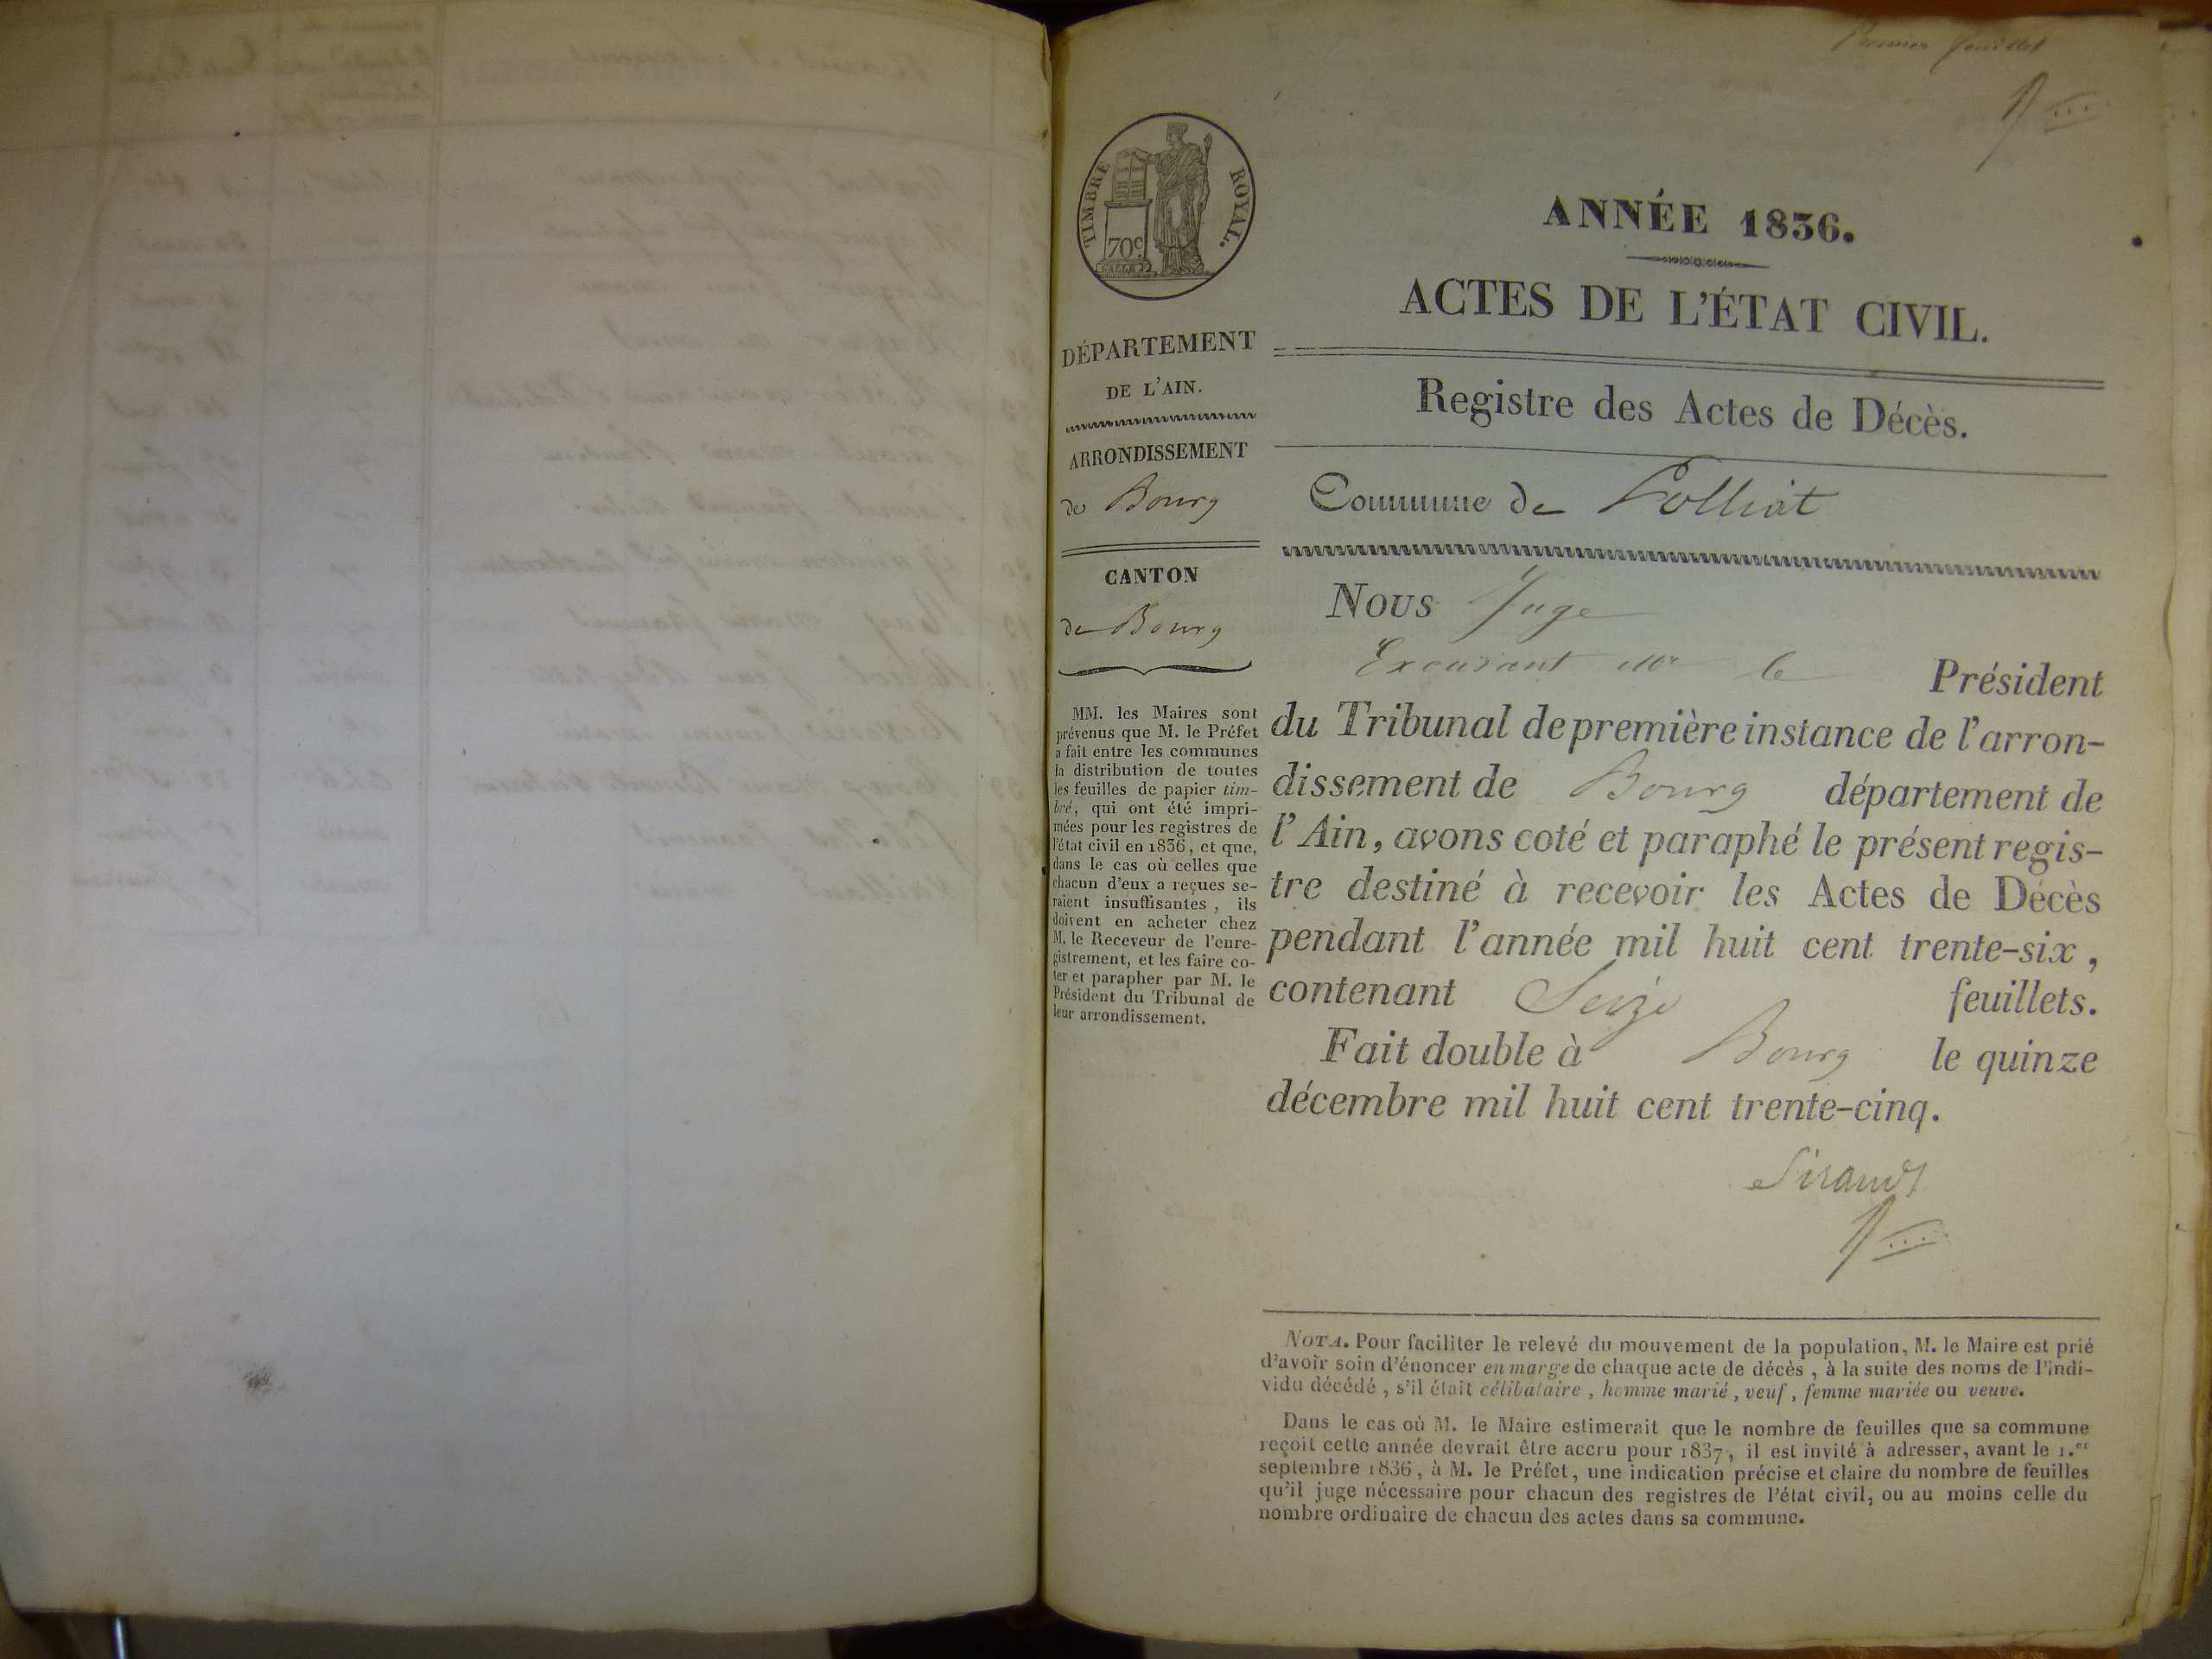 Premier feuillet
TIMBRE ROYAL.
70c.
ANNÉE 1836.
ACTES DE L'ÉTAT CIVIL.
Registre des Actes de Décès.
Commune de Polliat
DÉPARTEMENT
DE L'AIN.
ARRONDISSEMENT
de Bourg
CANTON
de Bourg
MM. les Maires sont
prévenus que M. le Préfet
a fait entre les communes
la distribution de toutes
les feuilles de papier tim-
bré, qui ont été impri-
mées pour les registres de
l'état civil en 1836, et que,
dans le cas où celles que
chacun d'eux a reçues se-
raient insuffisantes, ils
doivent en acheter chez
M. le Receveur de l'enre-
gistrement, et les faire co-
ter et parapher par M. le
Président du Tribunal de
leur arrondissement.
Nous Juge
Excusant Mr le Président
du Tribunal de première instance de l'arron-
dissement de Bourg département de
l'Ain, avons coté et paraphé le présent regis-
tre destiné à recevoir les Actes de Décès
pendant l'année mil huit cent trente-six,
contenant Seize feuillets.
Fait double à Bourg le quinze
décembre mil huit cent trente-cinq.
Sirand
NOTA. Pour faciliter le relevé du mouvement de la population, M. le Maire est prié
d'avoir soin d'énoncer en marge de chaque acte de décès, à la suite des noms de l'indi-
vidu décédé, s'il était célibataire, homme marié, veuf, femme mariée ou veuve.
Dans le cas où M. le Maire estimerait que le nombre de feuilles que sa commune
reçoit cette année devrait être accru pour 1837, il est invité à adresser, avant le 1.er
septembre 1836, à M. le Préfet, une indication précise et claire du nombre de feuilles
qu'il juge nécessaire pour chacun des registres de l'état civil, ou au moins celle du
nombre ordinaire de chacun des actes dans sa commune.